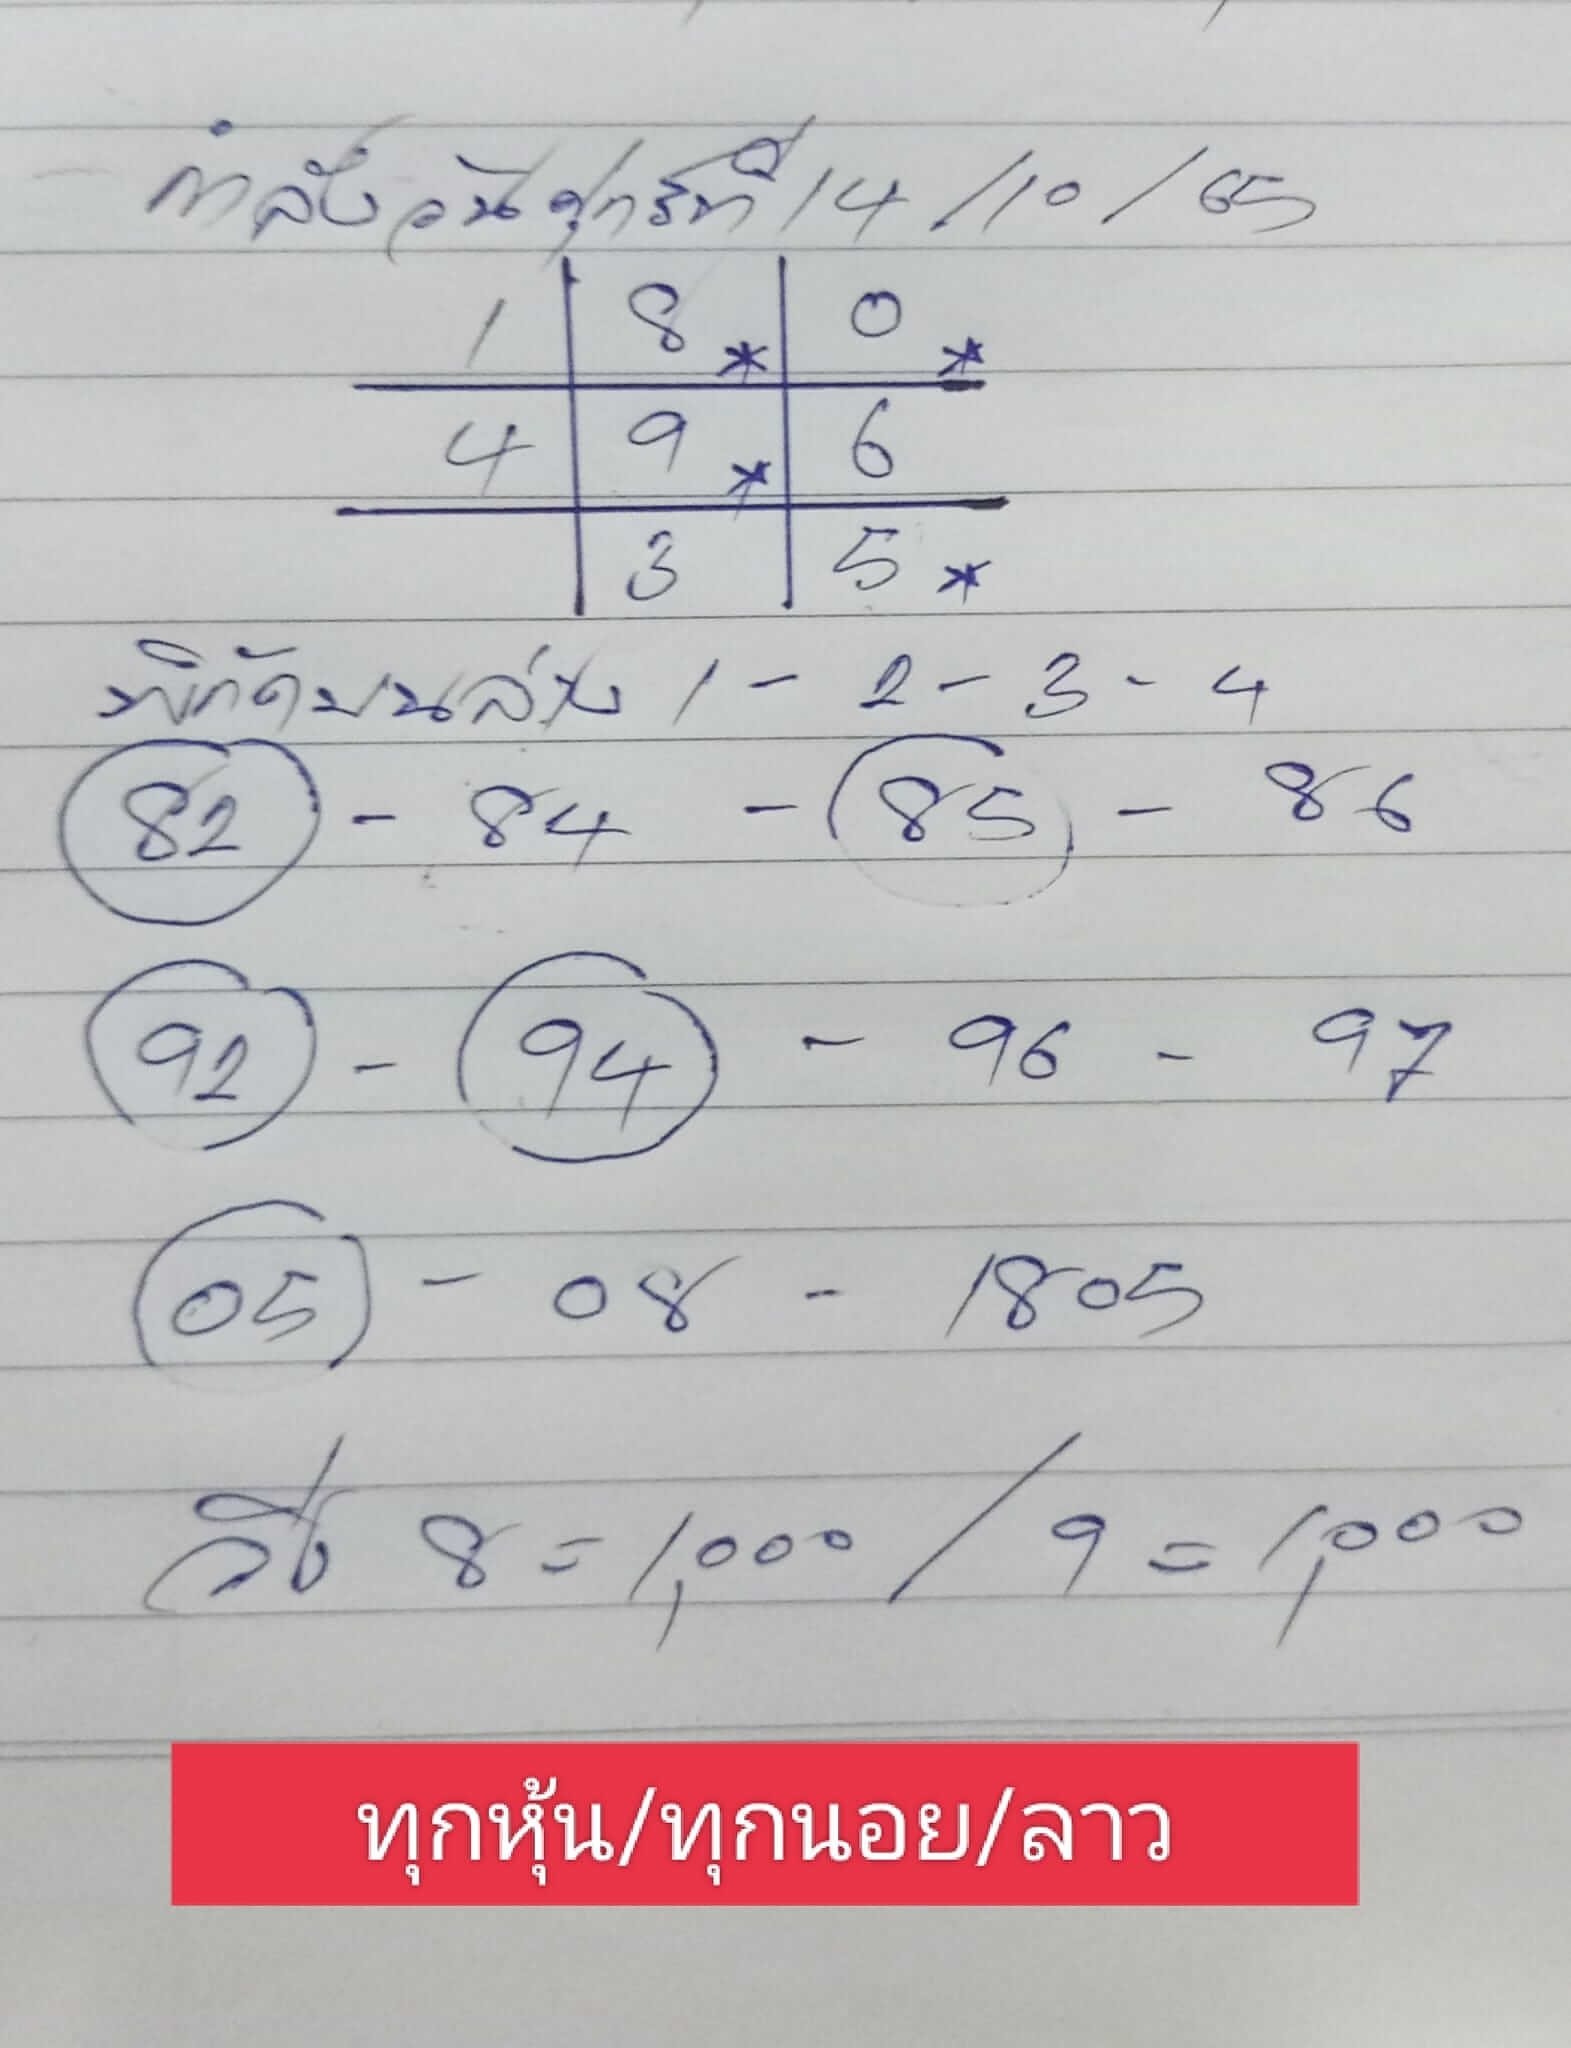 กำลังวันศุกร์ที่ 14/10/65
1 8* 0*
4 9* 6
3 5*
พิกัดบนล่าง 1 - 2 - 3 - 4
82 - 84 - 85 - 86
92 - 94 - 96 - 97
05 - 08 - 1805
วิ่ง 8 = 1,000 / 9 = 1,000
ทุกหุ้น/ทุกนอย/ลาว